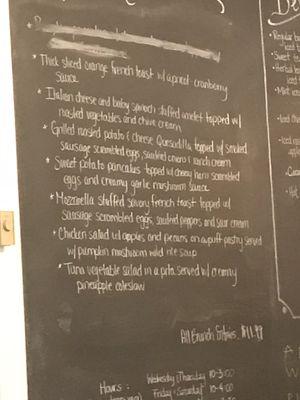 * Thick sliced orange french toast w/ apricot-cranberry
sauce
* Italian cheese and baby spinach stuffed omelet topped w/
roasted vegetables and chive cream
* Grilled roasted potato & cheese Quesadilla topped w/ smoked
sausage scrambled eggs, sautéed onions & ranch cream
* Sweet potato pancakes topped w/ creamy ham scrambled
eggs and creamy garlic mushroom sauce
* Mozzarella stuffed savory french toast topped w/
sausage scrambled eggs, sautéed peppers and sour cream
* Chicken salad w/ apples and pecans on a puff pastry served
w/ pumpkin mushroom wild rice soup
* Tuna vegetable salad in a pita served w/ creamy
pineapple coleslaw
All Brunch Entrées $11.99
Hours:
Wednesday/Thursday 10-3:00
Friday-Saturday 10-4:00
De
Regular
Sweet
Herbal
Mint